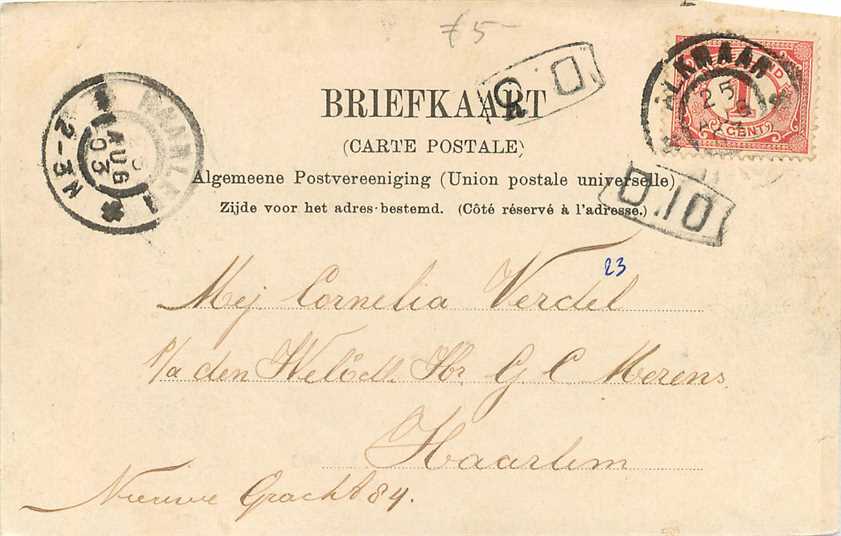 £5-
BRIEFKAART
(CARTE POSTALE)
Algemeene Postvereeniging (Union postale universelle)
Zijde voor het adres bestemd. (Côté réservé à l'adresse.)
ALKMAAR
25
1
CENT
HAARLEM
AUG
03
2-3 N
D.10
23
Mej Cornelia Verdel
p/a den WelEd. Hr G C Merens
Haarlem
Nieuwe Gracht 84.